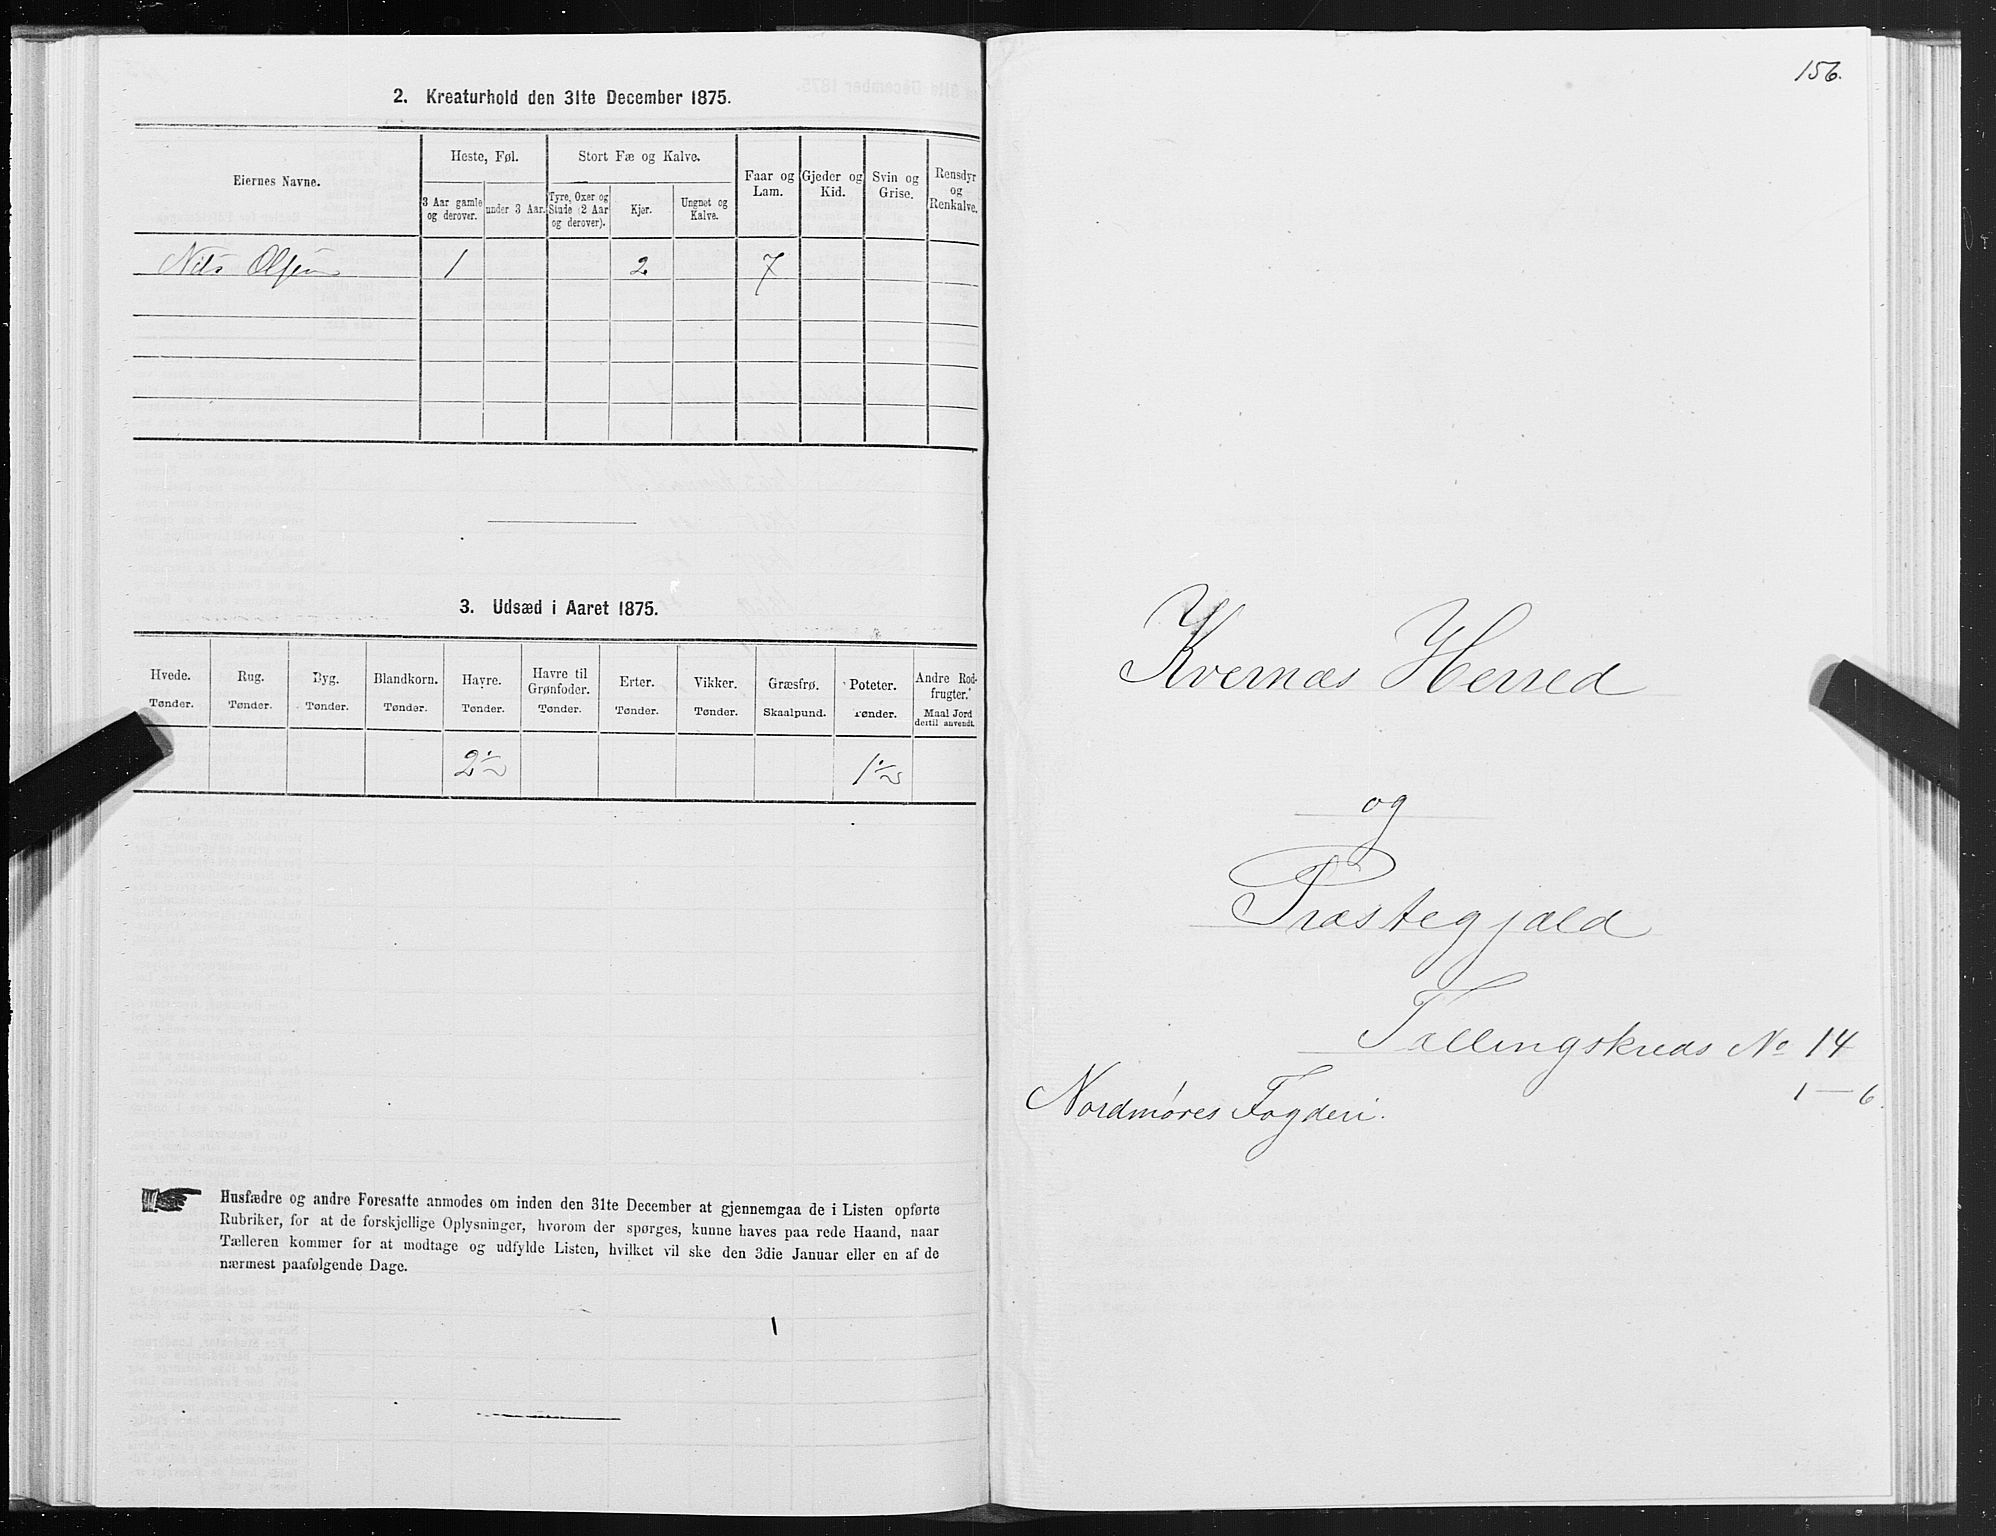 2. Kreaturhold den 31te December 1875.
Eiernes Navne.
Heste, Føl.
Stort Fæ og Kalve.
Faar og Lam.
Gjeder og Kid.
Svin og Grise.
Rensdyr og Renkalve.
3 Aar gamle og derover.
under 3 Aar.
Tyre, Oxer og Stude (2 Aar og derover).
Kjør.
Ungnet og Kalve.
Nils Olsen 1 2 7
3. Udsæd i Aaret 1875.
Hvede. Rug. Byg. Blandkorn. Havre. Havre til Grønfoder. Erter. Vikker. Græsfrø. Poteter. Andre Rodfrugter.
Tønder. Tønder. Tønder. Tønder. Tønder. Tønder. Tønder. Tønder. Skaalpund. Tønder. Maal Jord dertil anvendt.
2 1/2 1 1/2
Husfædre og andre Foresatte anmodes om inden den 31te December at gjennemgaa de i Listen opførte
Rubriker, for at de forskjellige Oplysninger, hvorom der spørges, kunne haves paa rede Haand, naar
Tælleren kommer for at modtage og udfylde Listen, hvilket vil ske den 3die Januar eller en af de
nærmest paafølgende Dage.
156.
Kvernæs Herred
og
Præstegjæld
Tællingskreds No 14
1 — 6.
Nordmøres Fogderi.